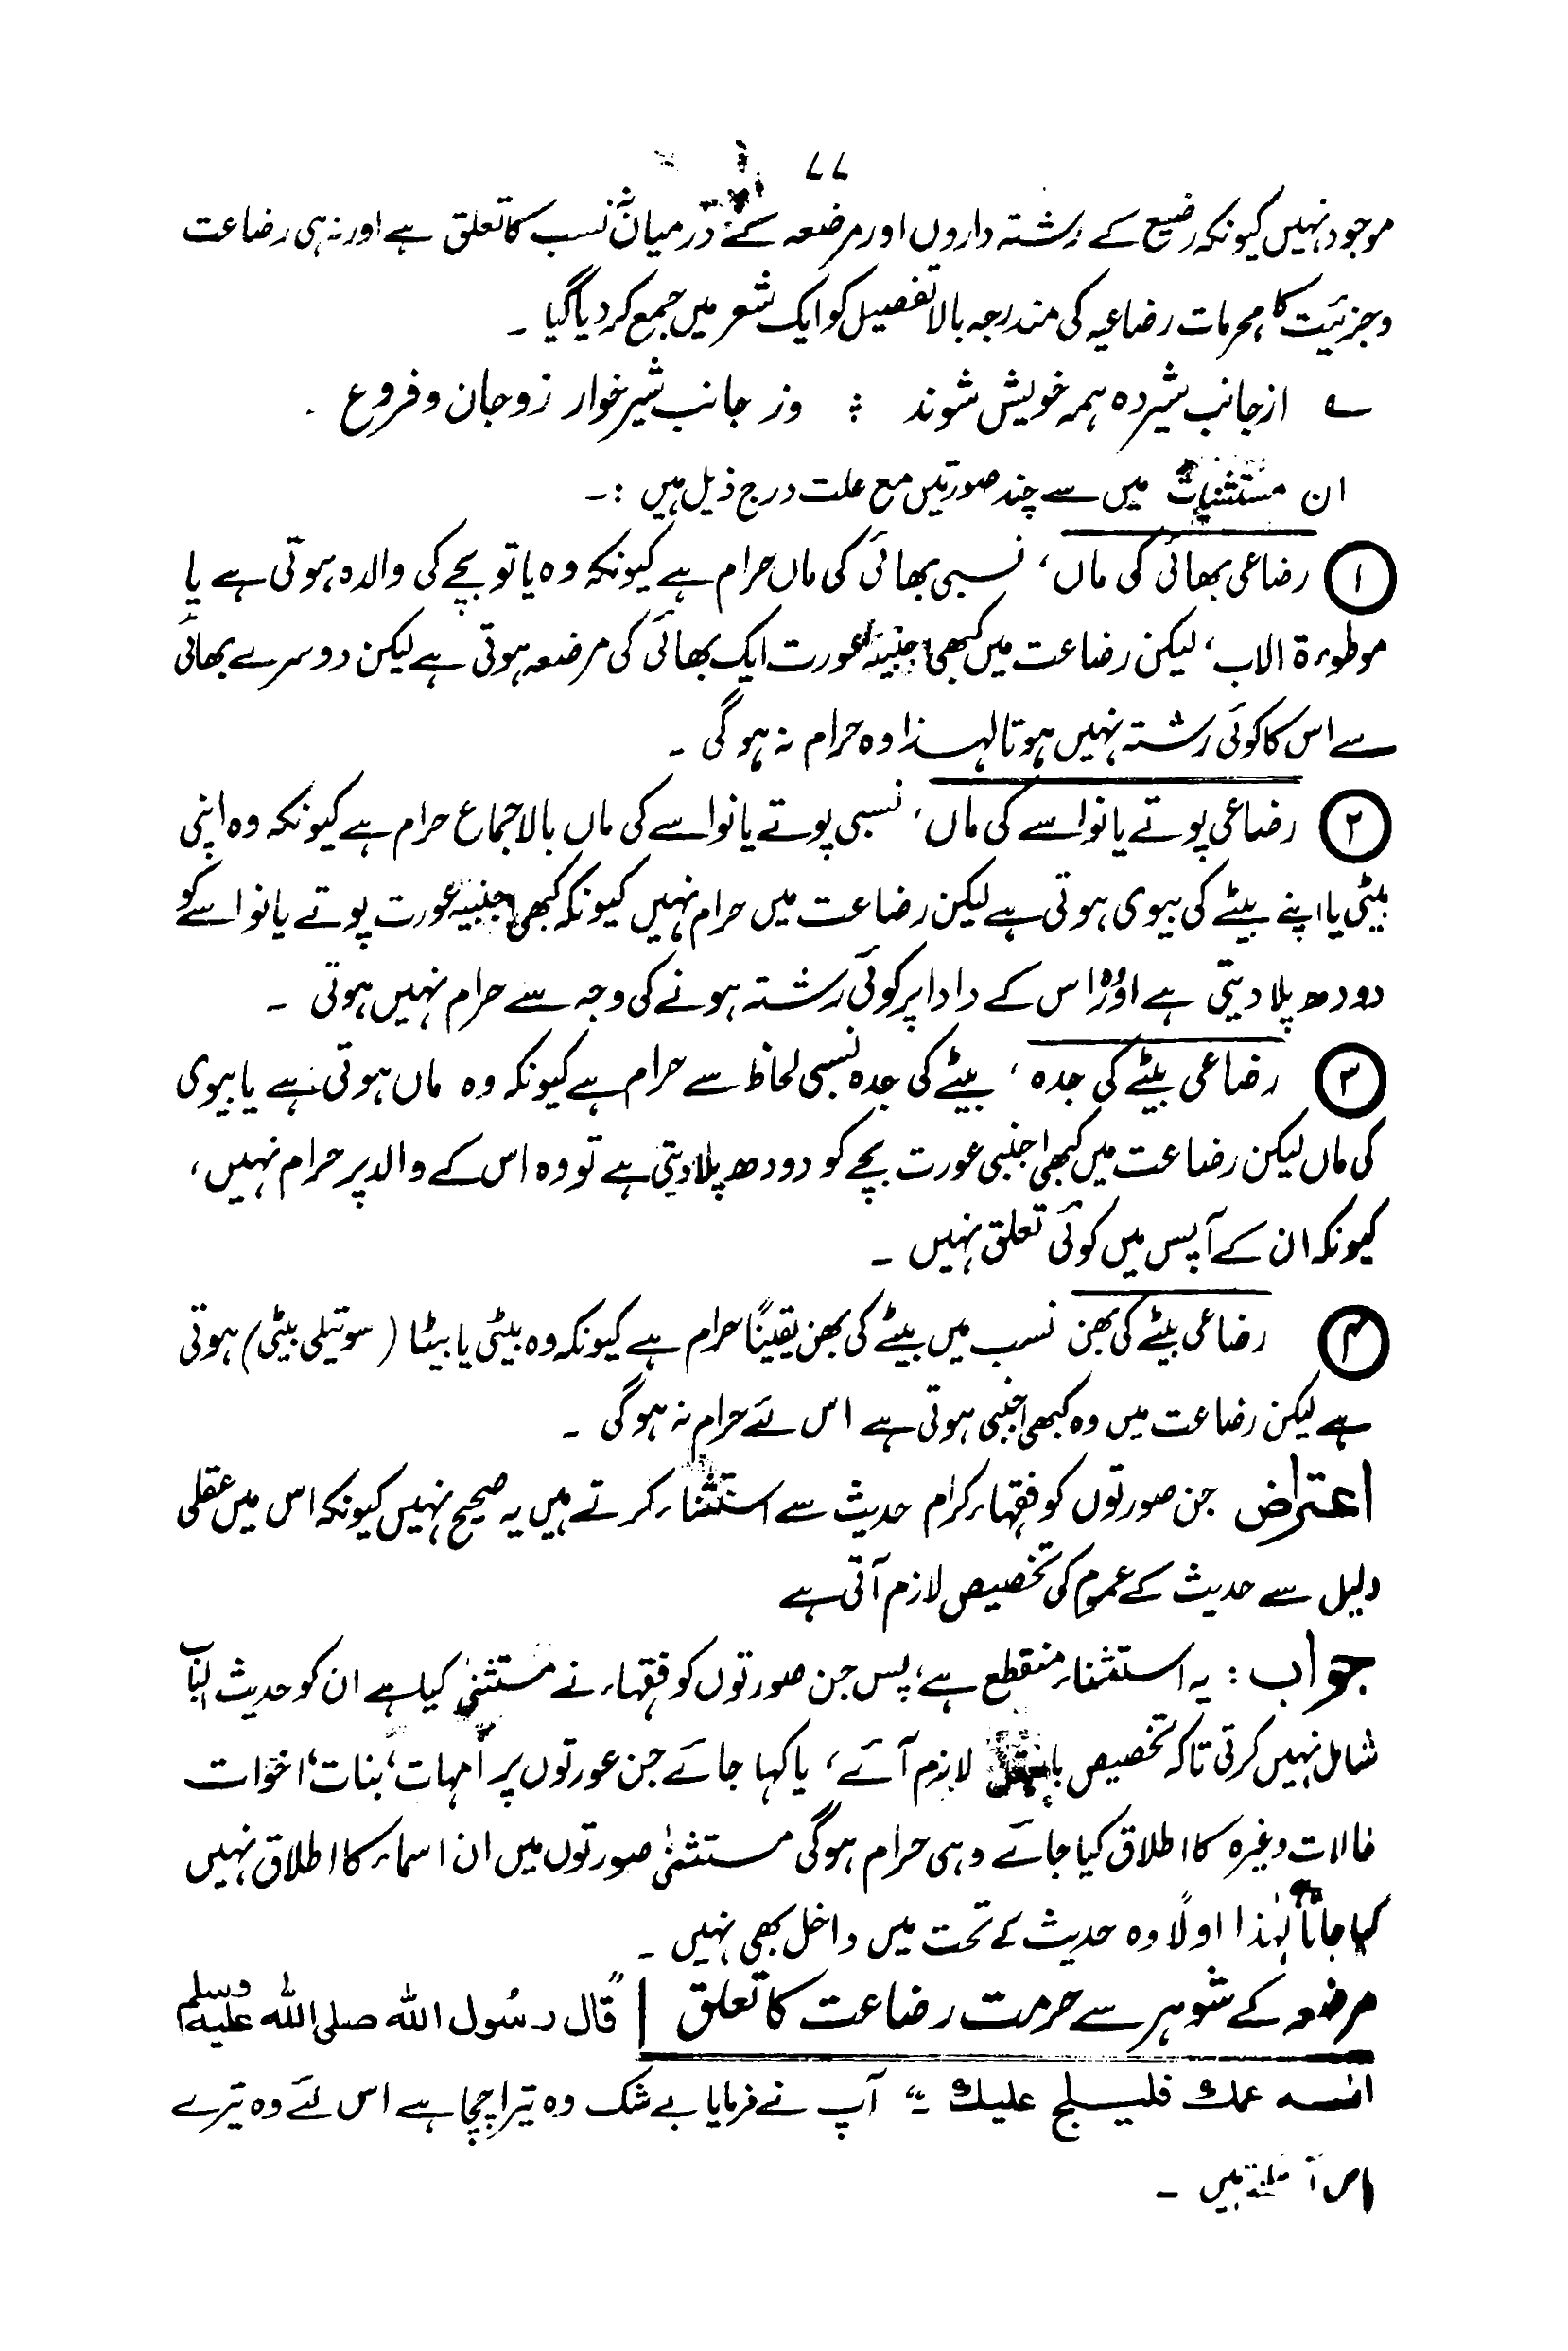 ۷۷
موجود نہیں کیونکہ رضیع کے رشتہ داروں اور مرضعہ کے درمیان نسب کا تعلق ہے اور نہ ہی رضاعت
وجزئیت کا، محرمات رضاعیہ کی مندرجہ بالا تفصیل کو ایک شعر میں جمع کر دیا گیا ۔
؎ از جانب شیردہ ہمہ خویش شوند ؛ وز جانب شیرخوار زوجان وفروع
ان مستثنیات میں سے چند صورتیں مع علت درج ذیل ہیں :۔
① رضاعی بھائی کی ماں، نسبی بھائی کی ماں حرام ہے کیونکہ وہ یا تو بچے کی والدہ ہوتی ہے یا
موطوءۃ الاب، لیکن رضاعت میں کبھی اجنبیہ عورت ایک بھائی کی مرضعہ ہوتی ہے لیکن دوسرے بھائی
سے اس کا کوئی رشتہ نہیں ہوتا لہٰذا وہ حرام نہ ہوگی ۔
② رضاعی پوتے یا نواسے کی ماں، نسبی پوتے یا نواسے کی ماں بالاجماع حرام ہے کیونکہ وہ اپنی
بیٹی یا اپنے بیٹے کی بیوی ہوتی ہے لیکن رضاعت میں حرام نہیں کیونکہ کبھی اجنبیہ عورت پوتے یا نواسے کو
دودھ پلا دیتی ہے اور وہ اس کے دادا پر کوئی رشتہ ہونے کی وجہ سے حرام نہیں ہوتی ۔
③ رضاعی بیٹے کی جدہ، بیٹے کی جدہ نسبی لحاظ سے حرام ہے کیونکہ وہ ماں ہوتی ہے یا بیوی
کی ماں لیکن رضاعت میں کبھی اجنبی عورت بچے کو دودھ پلا دیتی ہے تو وہ اس کے والد پر حرام نہیں،
کیونکہ ان کے آپس میں کوئی تعلق نہیں ۔
④ رضاعی بیٹے کی بہن نسب میں بیٹے کی بہن یقیناً حرام ہے کیونکہ وہ بیٹی یا بیٹا (سوتیلی بیٹی) ہوتی
ہے لیکن رضاعت میں وہ کبھی اجنبی ہوتی ہے اس لئے حرام نہ ہوگی ۔
اعتراض جن صورتوں کو فقہاء کرام حدیث سے استثناء کرتے ہیں یہ صحیح نہیں کیونکہ اس میں عقلی
دلیل سے حدیث کے عموم کی تخصیص لازم آتی ہے
جواب : یہ استثناء منقطع ہے، پس جن صورتوں کو فقہاء نے مستثنیٰ کیا ہے ان کو حدیث
شامل نہیں کرتی تاکہ تخصیص لازم آئے، یا کہا جائے جن عورتوں پر امہات، بنات، اخوات
خالات وغیرہ کا اطلاق کیا جائے وہی حرام ہوگی مستثنیٰ صورتوں میں ان اسماء کا اطلاق نہیں
کیا جاتا لہٰذا اولاً وہ حدیث کے تحت میں داخل بھی نہیں ۔
مرضعہ کے شوہر سے حرمت رضاعت کا تعلق | ”قال رسول اللہ صلی اللہ علیہ وسلم
انہ عمك فليلج عليك“ آپ نے فرمایا بے شک وہ تیرا چچا ہے اس لئے وہ تیرے
ہیں ۔